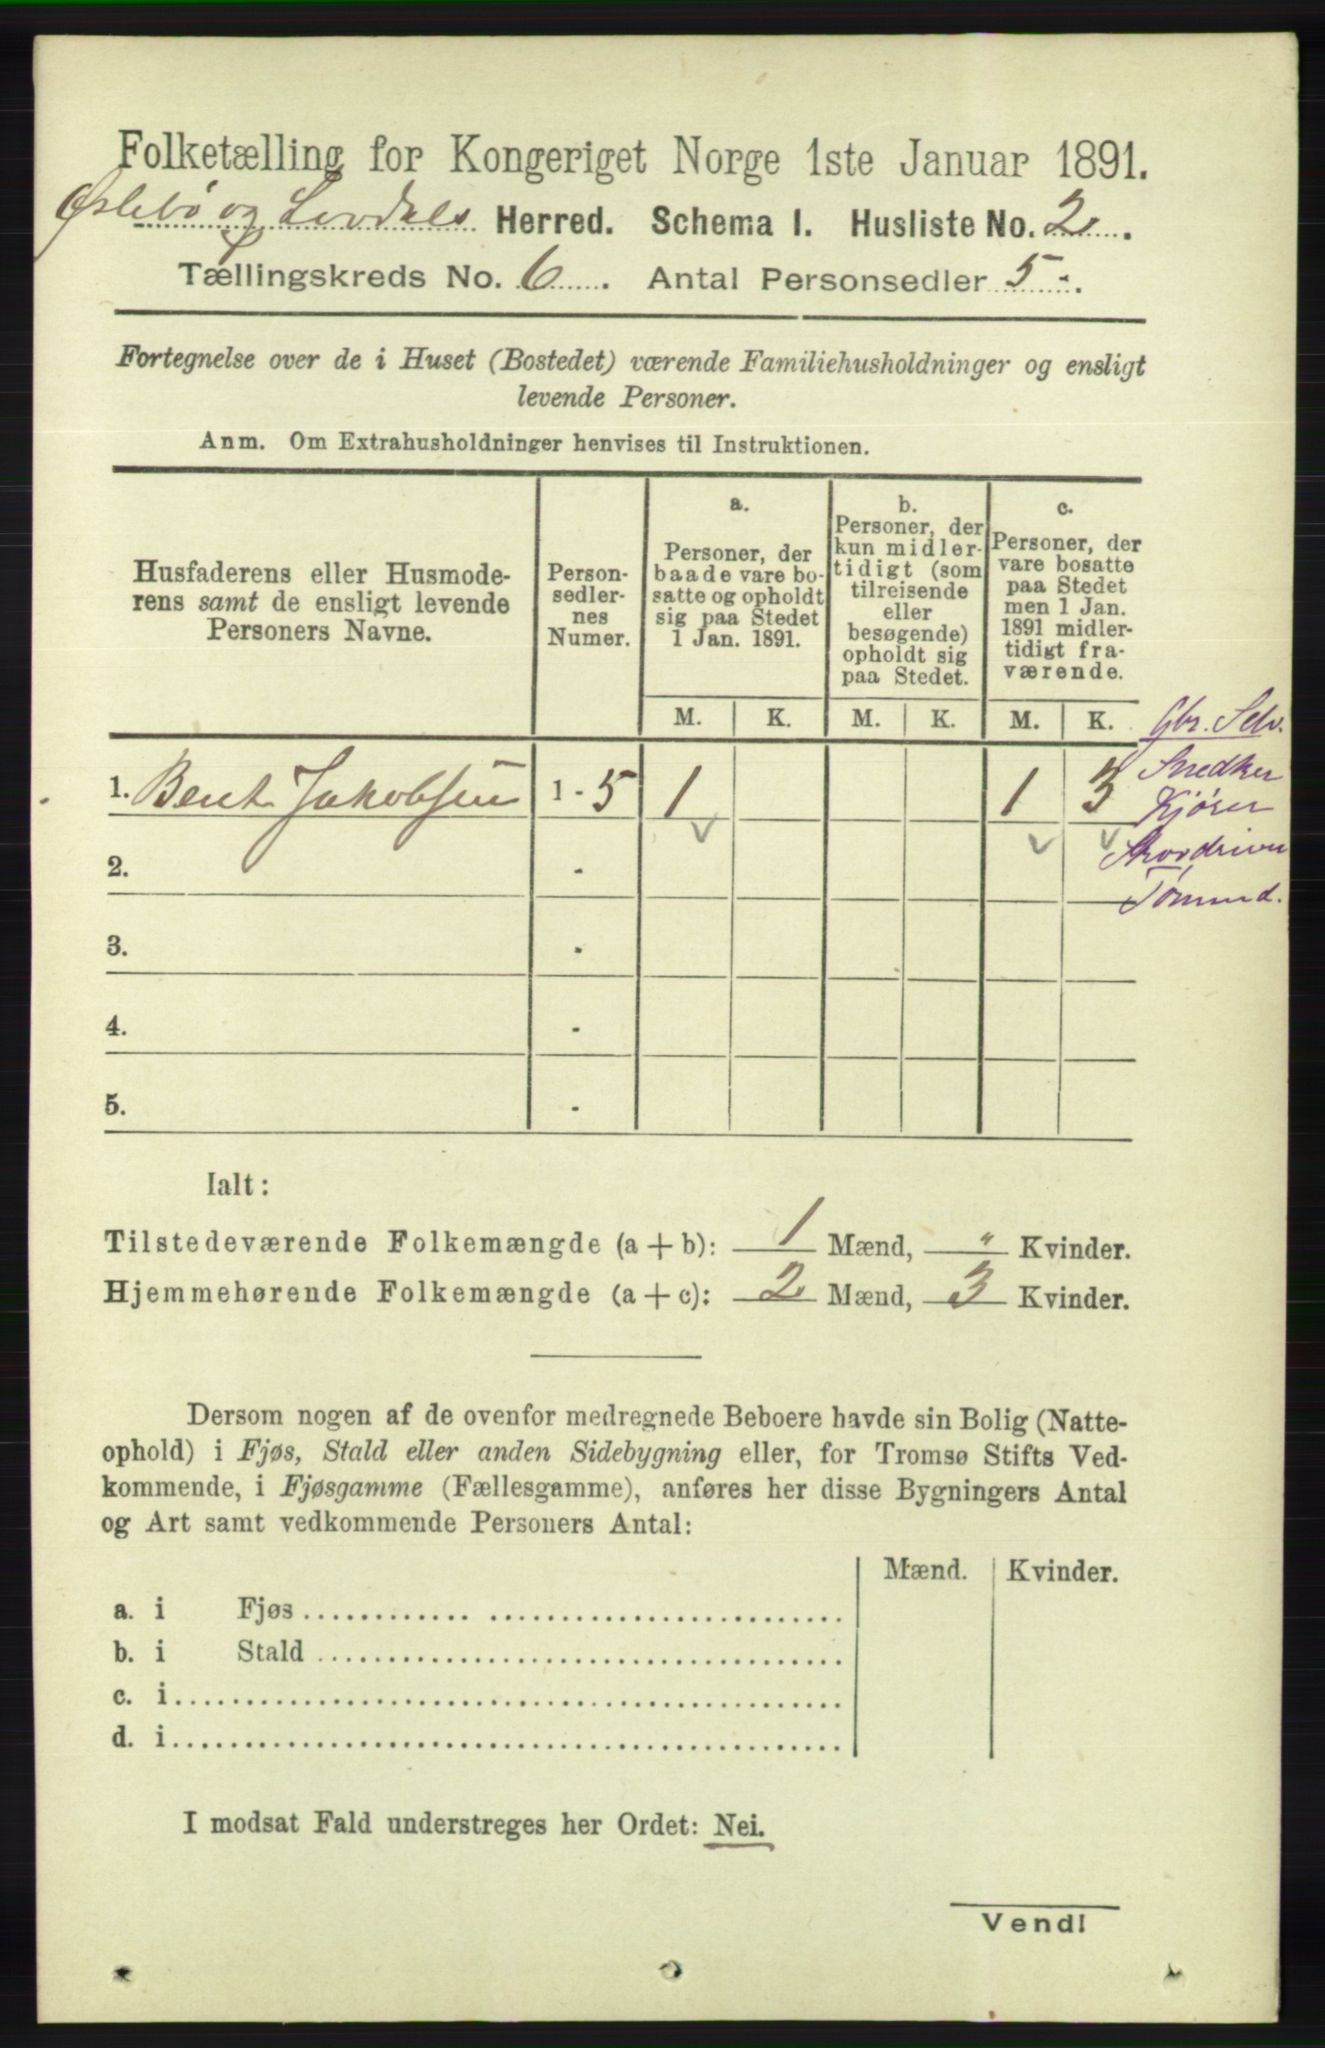 Folketælling for Kongeriget Norge 1ste Januar 1891.
Øslebø og Herred. Schema I. Husliste No. 2.
Tællingskreds No. 6. Antal Personsedler 5-.
Fortegnelse over de i Huset (Bostedet) værende Familiehusholdninger og ensligt
levende Personer.
Anm. Om Extrahusholdninger henvises til Instruktionen.
Husfaderens eller Husmode-
rens samt de ensligt levende
Personers Navne.
Person-
sedler-
nes
Numer.
a.
Personer, der
baade vare bo-
satte og opholdt
sig paa Stedet
1 Jan. 1891.
b.
Personer, der
kun midler-
tidigt (som
tilreisende
eller
besøgende)
opholdt sig
paa Stedet.
c.
Personer, der
vare bosatte
paa Stedet
men 1 Jan.
1891 midler-
tidigt fra-
værende.
M. K. M. K. M. K. Gbr. Selv.
1. Bent Jakobsen 1 - 5 1 1 3 Snedker
Kjører
2. -
Tømmerd.
3. -
4. -
5. -
Ialt:
Tilstedeværende Folkemængde (a + b): 1 Mænd, " Kvinder.
Hjemmehørende Folkemængde (a + c): 2 Mænd, 3 Kvinder.
Dersom nogen af de ovenfor medregnede Beboere havde sin Bolig (Natte-
ophold) i Fjøs, Stald eller anden Sidebygning eller, for Tromsø Stifts Ved-
kommende, i Fjøsgamme (Fællesgamme), anføres her disse Bygningers Antal
og Art samt vedkommende Personers Antal:
Mænd. Kvinder.
a. i Fjøs
b. i Stald
c. i
d. i
I modsat Fald understreges her Ordet: Nei.
Vend!